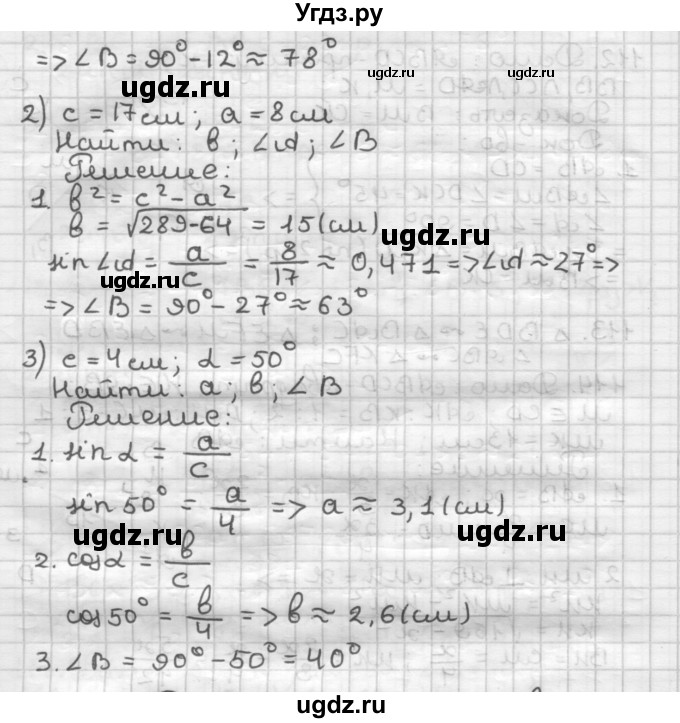 Угдз.ру
=> ∠B = 90° - 12° ≈ 78°
ugdz.ru ugdz.ru ugdz.ru
2) c = 17 см; a = 8 см
Найти: в; ∠α; ∠B
Решение:
1. в² = c² - a²
в = √289-64 = 15 (см)
ugdz.ru
sin ∠α = a/c = 8/17 ≈ 0,471 => ∠α ≈ 27° =>
ugdz.ru
=> ∠B = 90° - 27° ≈ 63°
3) c = 4 см; α = 50°
Найти: a; в; ∠B
ugdz.ru
Решение:
1. sin α = a/c
ugdz.ru
sin 50° = a/4 => a ≈ 3,1 (см)
ugdz.ru ugdz.ru
2. cos α = в/c
cos 50° = в/4 => в ≈ 2,6 (см)
ugdz.ru
3. ∠B = 90° - 50° = 40°
ugdz.ru